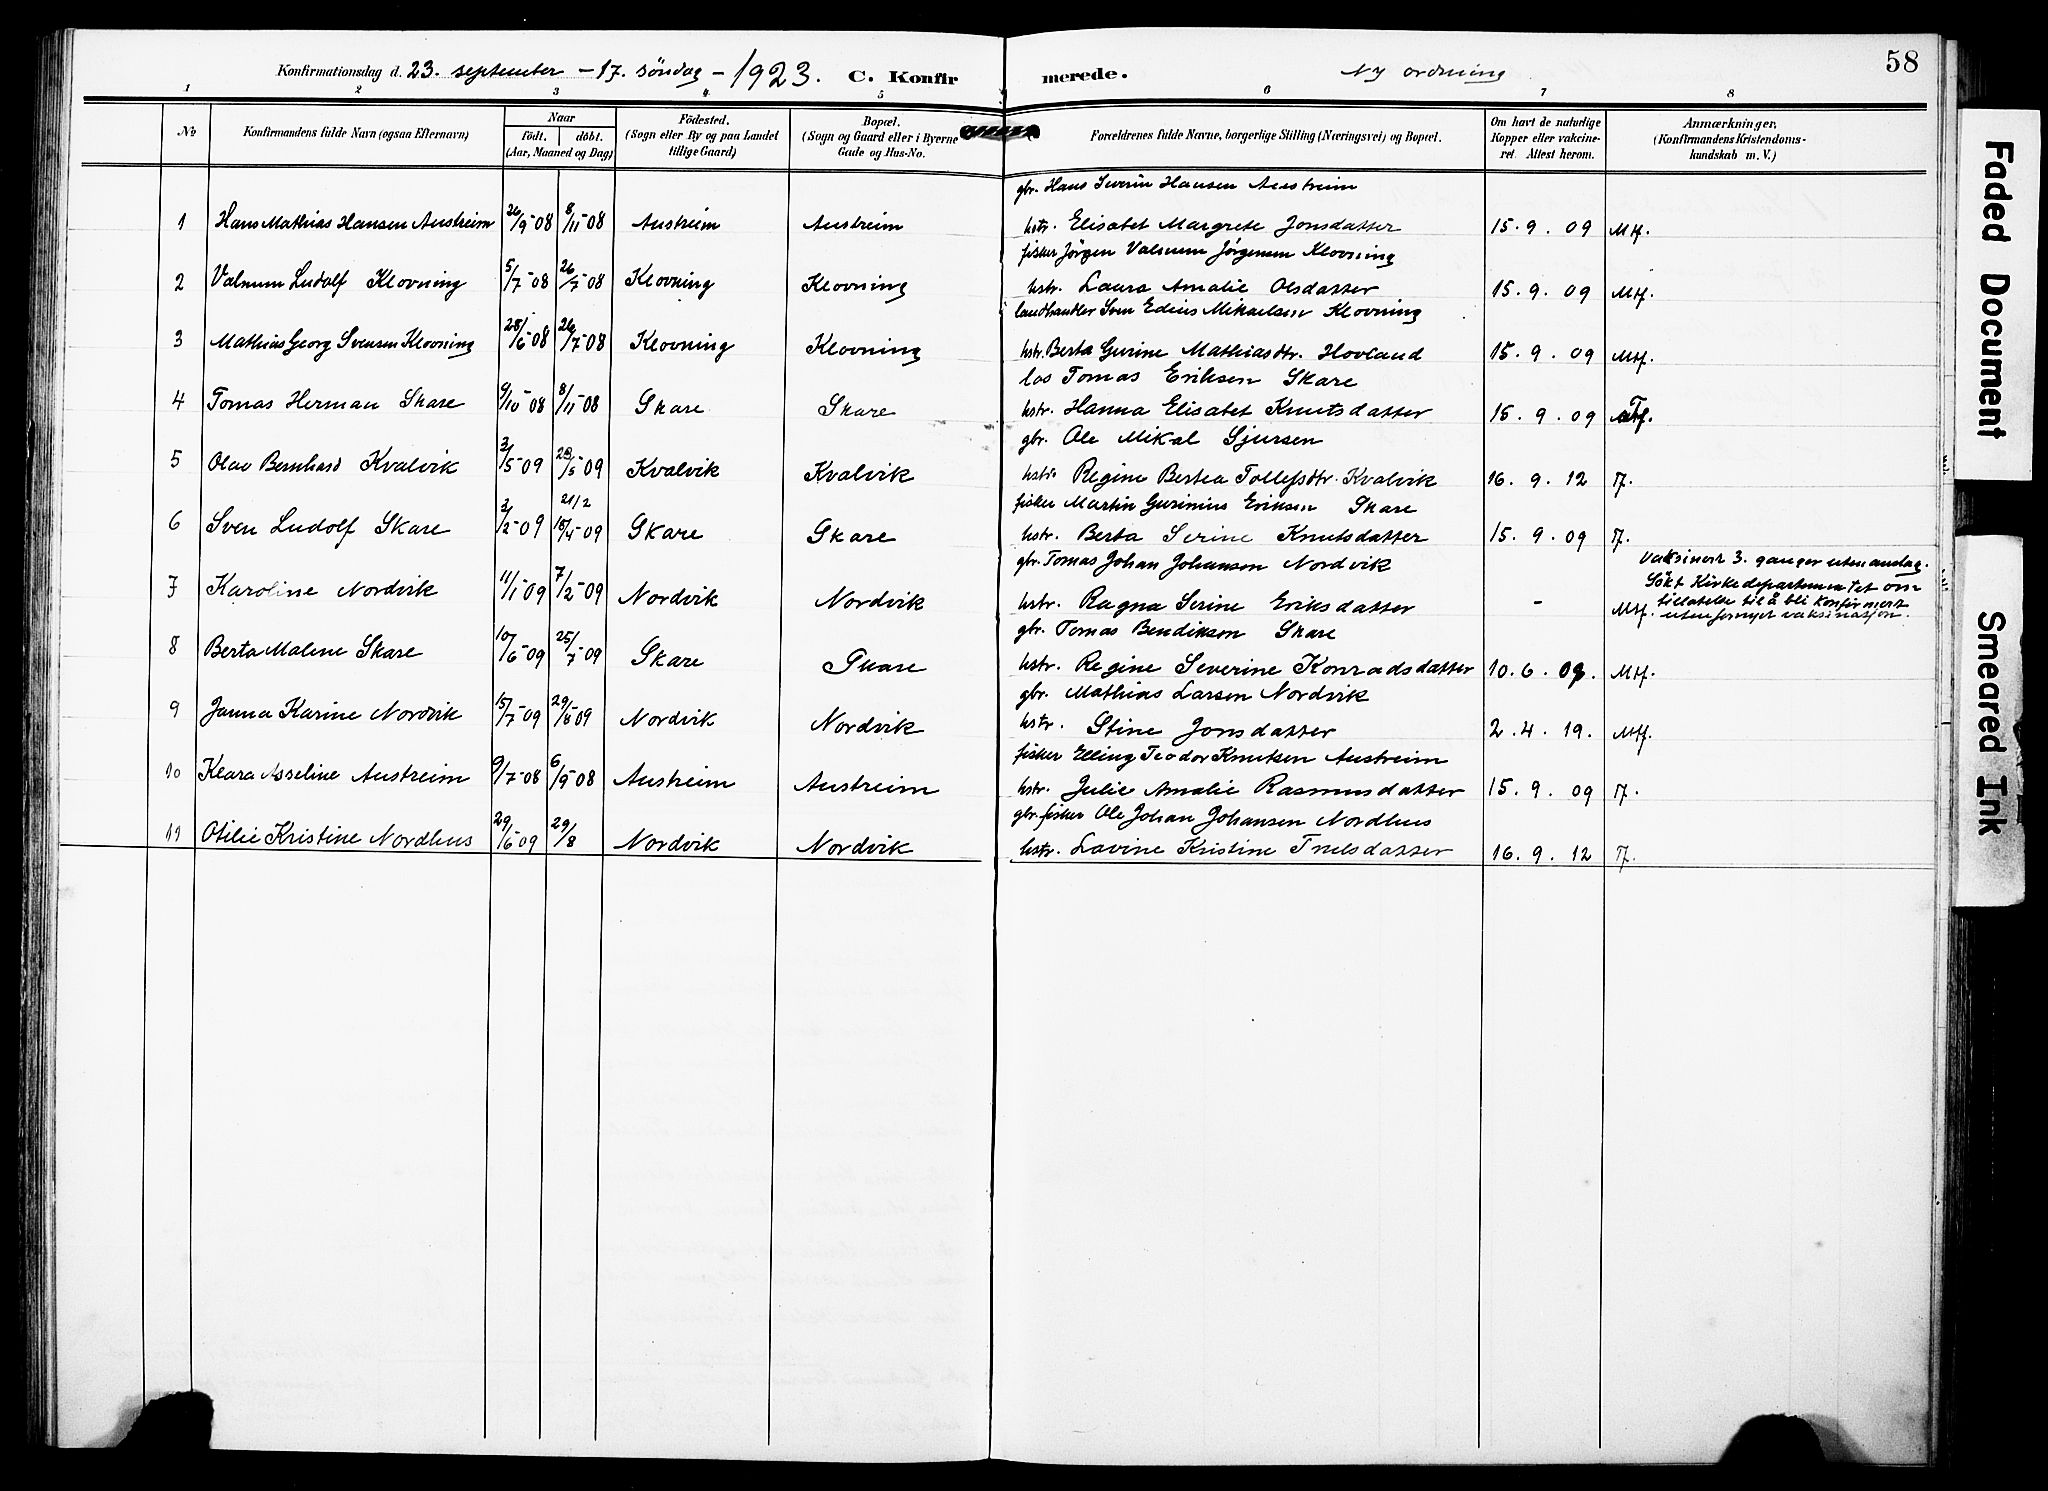 58
Konfirmationsdag d. 23. september - 17. søndag - 1923. C. Konfirmerede. Ny ordning
1 2 3 4 5 6 7 8
No Konfirmandens fulde Navn (ogsaa Efternavn) Naar født. døbt. (Aar, Maaned og Dag) Fødested. (Sogn eller By og paa Landet tillige Gaard) Bopæl. (Sogn og Gaard eller i Byerne Gade og Hus-No. Forældrenes fulde Navne, borgerlige Stilling (Næringsvei) og Bopæl. Om havt de naturlige Kopper eller vakcineret. Attest herom. Anmærkninger, (Konfirmandens Kristendomskundskab m. V.)
gbr. Hans Severin Hansen Austreim
1 Hans Mathias Hansen Austreim 26/9-08 8/11-08 Austreim Austreim hstr. Elisabet Margrete Jonsdatter 15.9.09 Mtf.
fisker Jörgen Valnum Jörgensen Klovning
2 Valnum Ludolf Klovning 5/7-08 26/7-08 Klovning Klovning hstr. Laura Amalie Olsdatter 15.9.09 Mtf.
landhandler Sven Edius Mikaelsen Klovning
3 Mathias Georg Svensen Klovning 28/6-08 26/7-08 Klovning Klovning hstr. Berta Gurine Mathiasdtr. Hovland 15.9.09 Mtf.
los Tomas Eriksen Skare
4 Tomas Herman Skare 9/10-08 8/11-08 Skare Skare hstr. Hanna Elisabet Knutsdatter 15.9.09
gbr. Ole Mikal Sjursen
5 Olav Bernhard Kvalvik 3/5-09 23/5-09 Kvalvik Kvalvik hstr. Regine Bertea Tollefsdtr. Kvalvik 16.9.12 Tf.
fisker Martin Gurinius Eriksen Skare
6 Sven Ludolf Skare 2/2-09 21/2 18/4-09 Skare Skare hstr. Berta Serine Knutsdatter 15.9.09 Tf.
gbr. Tomas Johan Johansen Nordvik Vaksinert 3. ganger uten anslag.
7 Karoline Nordvik 11/1-09 7/2-09 Nordvik Nordvik hstr. Ragna Serine Eriksdatter - Mtf. Sökt Kirkedepartementet om
tillatelse til å bli konfirmert
uten fornyet vaksinasjon.
gbr. Tomas Bendikson Skare
8 Berta Malene Skare 10/6-09 25/7-09 Skare Skare hstr. Regine Severine Konradsdatter 10.6.09. Mtf.
gbr. Mathias Larsen Nordvik
9 Janna Karine Nordvik 15/7-09 29/8-09 Nordvik Nordvik hstr. Stine Jonsdatter 2.4.19. Mtf.
fisker Elling Teodor Knutsen Austreim
10 Klara Asseline Austreim 9/7-08 6/9-08 Austreim Austreim hstr. Julie Amalie Rasmusdatter 15.9.09 Tf.
gbr. fisker Ole Johan Johansen Nordhus
11 Otilie Kristine Nordhus 29/6-09 29/8 Nordvik Nordvik hstr. Lavine Kristine Truelsdatter 16.9.12 Tf.
Faded Document
Smeared Ink